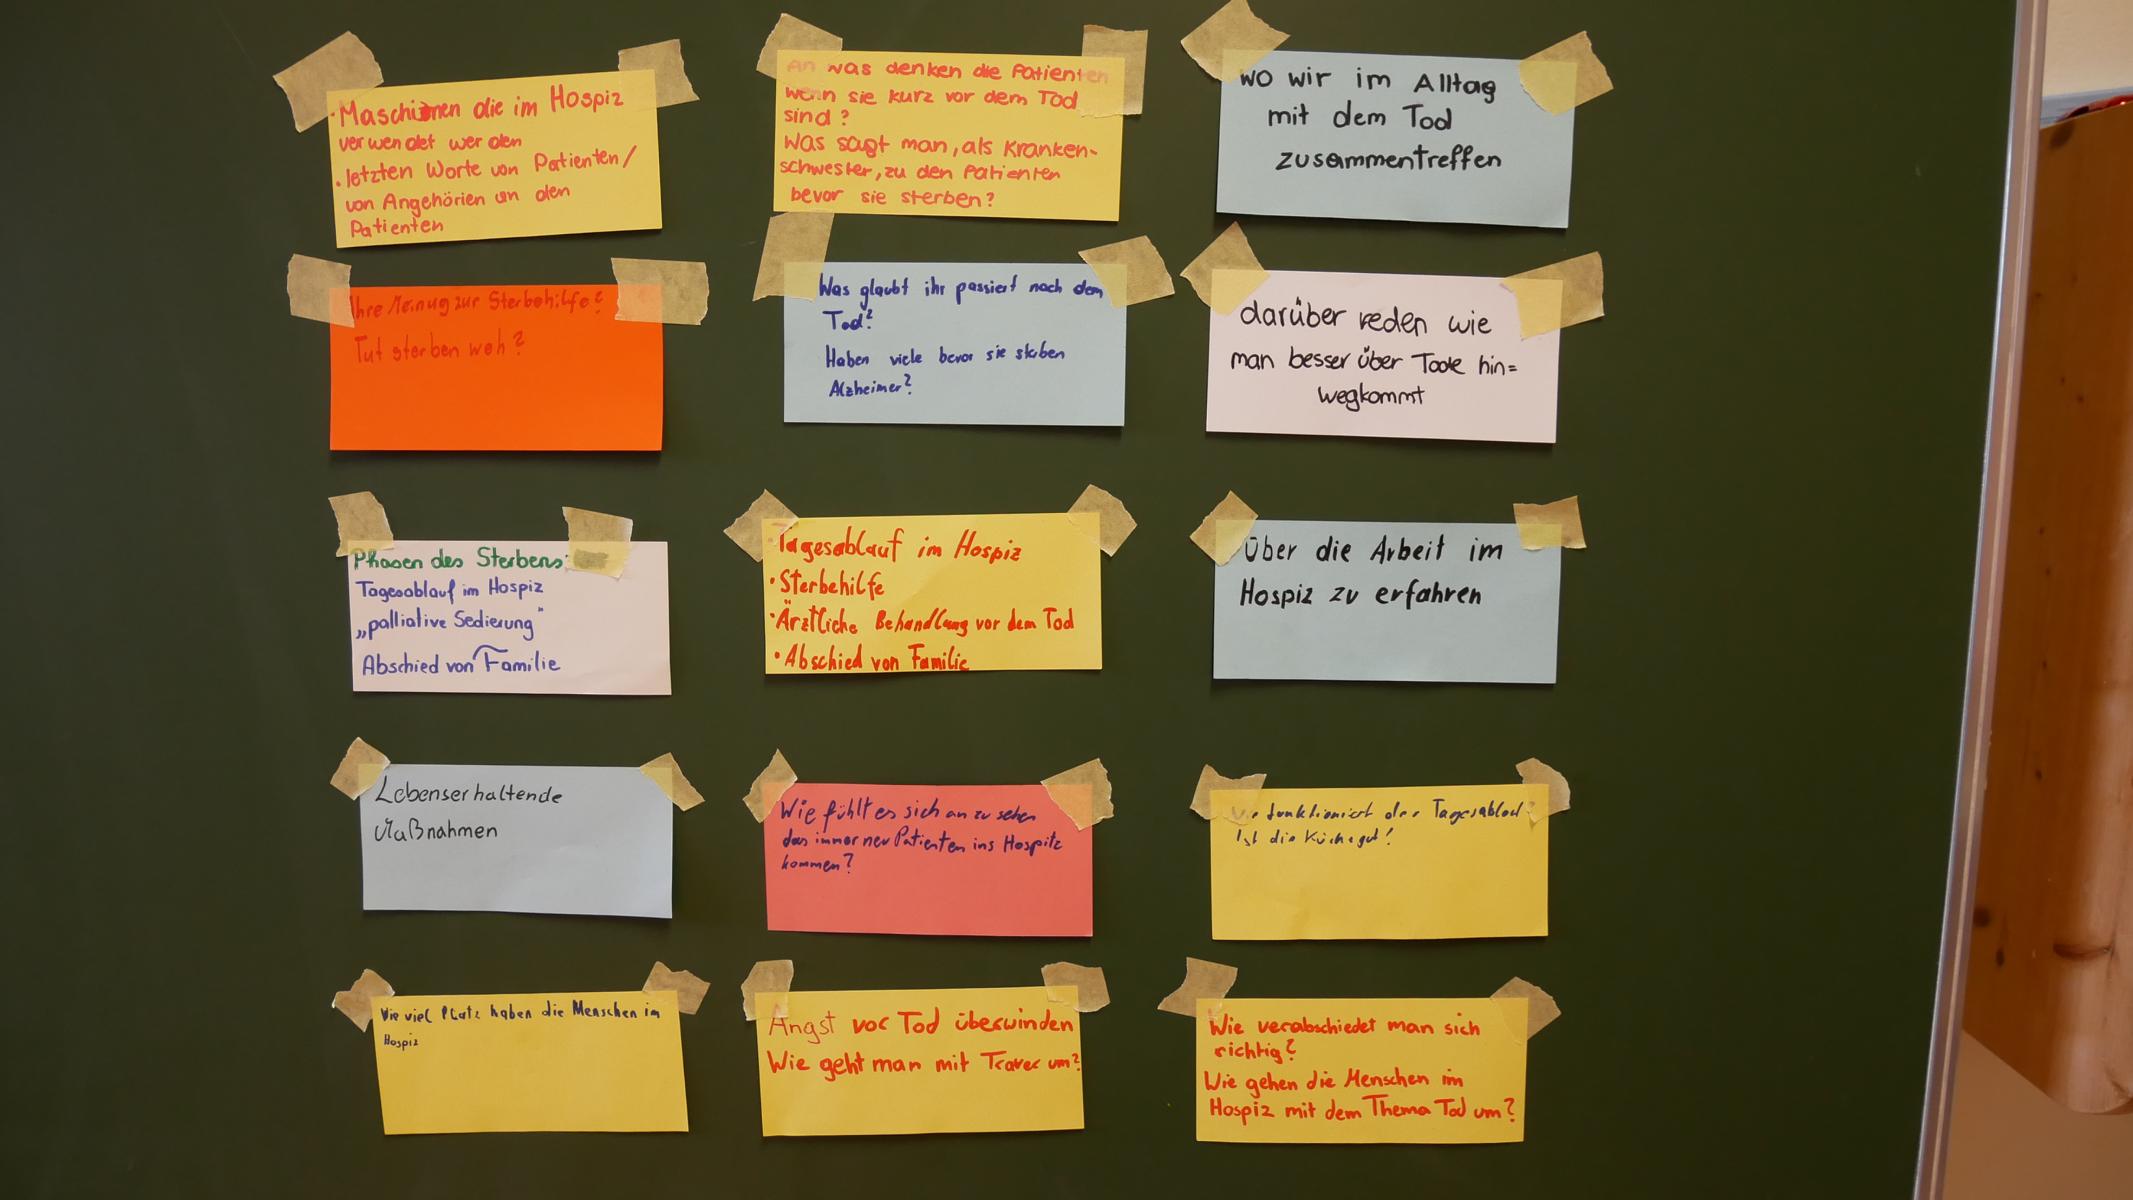 · Maschienen die im Hospiz
verwendet werden
· letzten Worte von Patienten/
von Angehörien an den
Patienten
An was denken die Patienten
wenn sie kurz vor dem Tod
sind?
Was sagt man, als Kranken-
schwester, zu den Patienten
bevor sie sterben?
wo wir im Alltag
mit dem Tod
zusammentreffen
Ihre Meinug zur Sterbehilfe?
Tut sterben weh?
Was glaubt ihr passiert nach dem
Tod?
Haben viele bevor sie sterben
Alzheimer?
darüber reden wie
man besser über Tode hin=
wegkommt
Phasen des Sterbens
Tagesablauf im Hospiz
„palliative Sedierung"
Abschied von Familie
· Tagesablauf im Hospiz
· Sterbehilfe
· Ärztliche Behandlung vor dem Tod
· Abschied von Familie
Über die Arbeit im
Hospiz zu erfahren
Lebenserhaltende
Maßnahmen
Wie fühlt es sich an zu sehen
das immer neu Patienten ins Hospitz
kommen?
Wie funktioniert der Tagesablauf?
Ist die Küche gut!
Wie viel Platz haben die Menschen im
Hospiz
Angst vor Tod überwinden
Wie geht man mit Trauer um?
Wie verabschiedet man sich
richtig?
Wie gehen die Menschen im
Hospiz mit dem Thema Tod um?